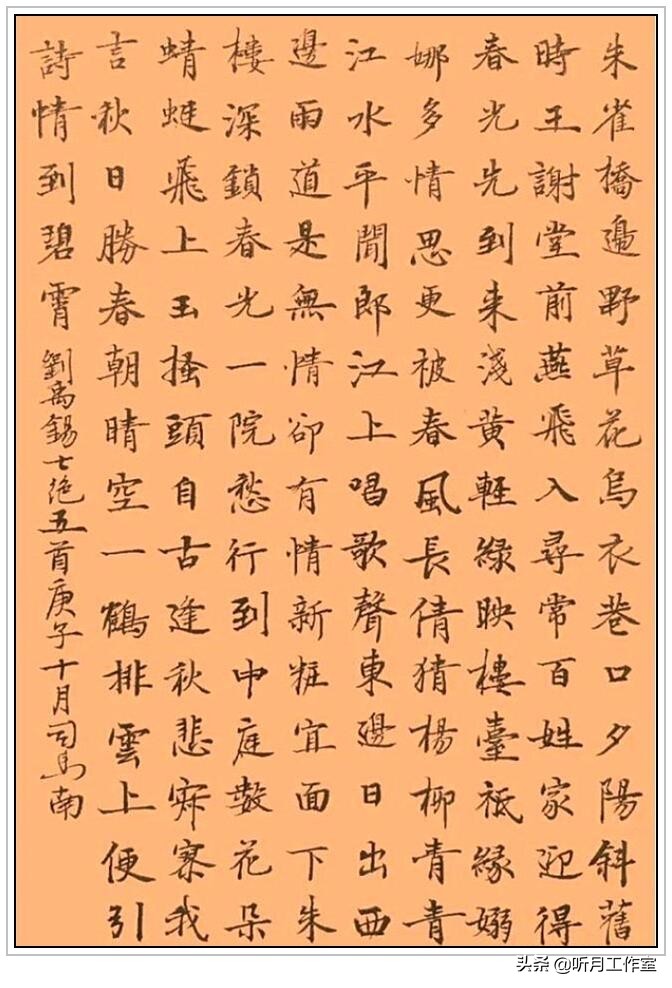 朱雀橋邊野草花烏衣巷口夕陽斜舊
時王謝堂前燕飛入尋常百姓家迎得
春光先到来淺黄輕綠映樓臺祗緣嫋
娜多情思更被春風長倩猜楊柳青青
江水平聞郎江上唱歌聲東邊日出西
邊雨道是無情卻有情新粧宜面下朱
樓深鎖春光一院愁行到中庭數花朵
蜻蜓飛上玉搔頭自古逢秋悲寂寥我
言秋日勝春朝晴空一鶴排雲上便引
詩情到碧霄 劉禹錫七绝五首庚子十月司马南
头条 @听月工作室